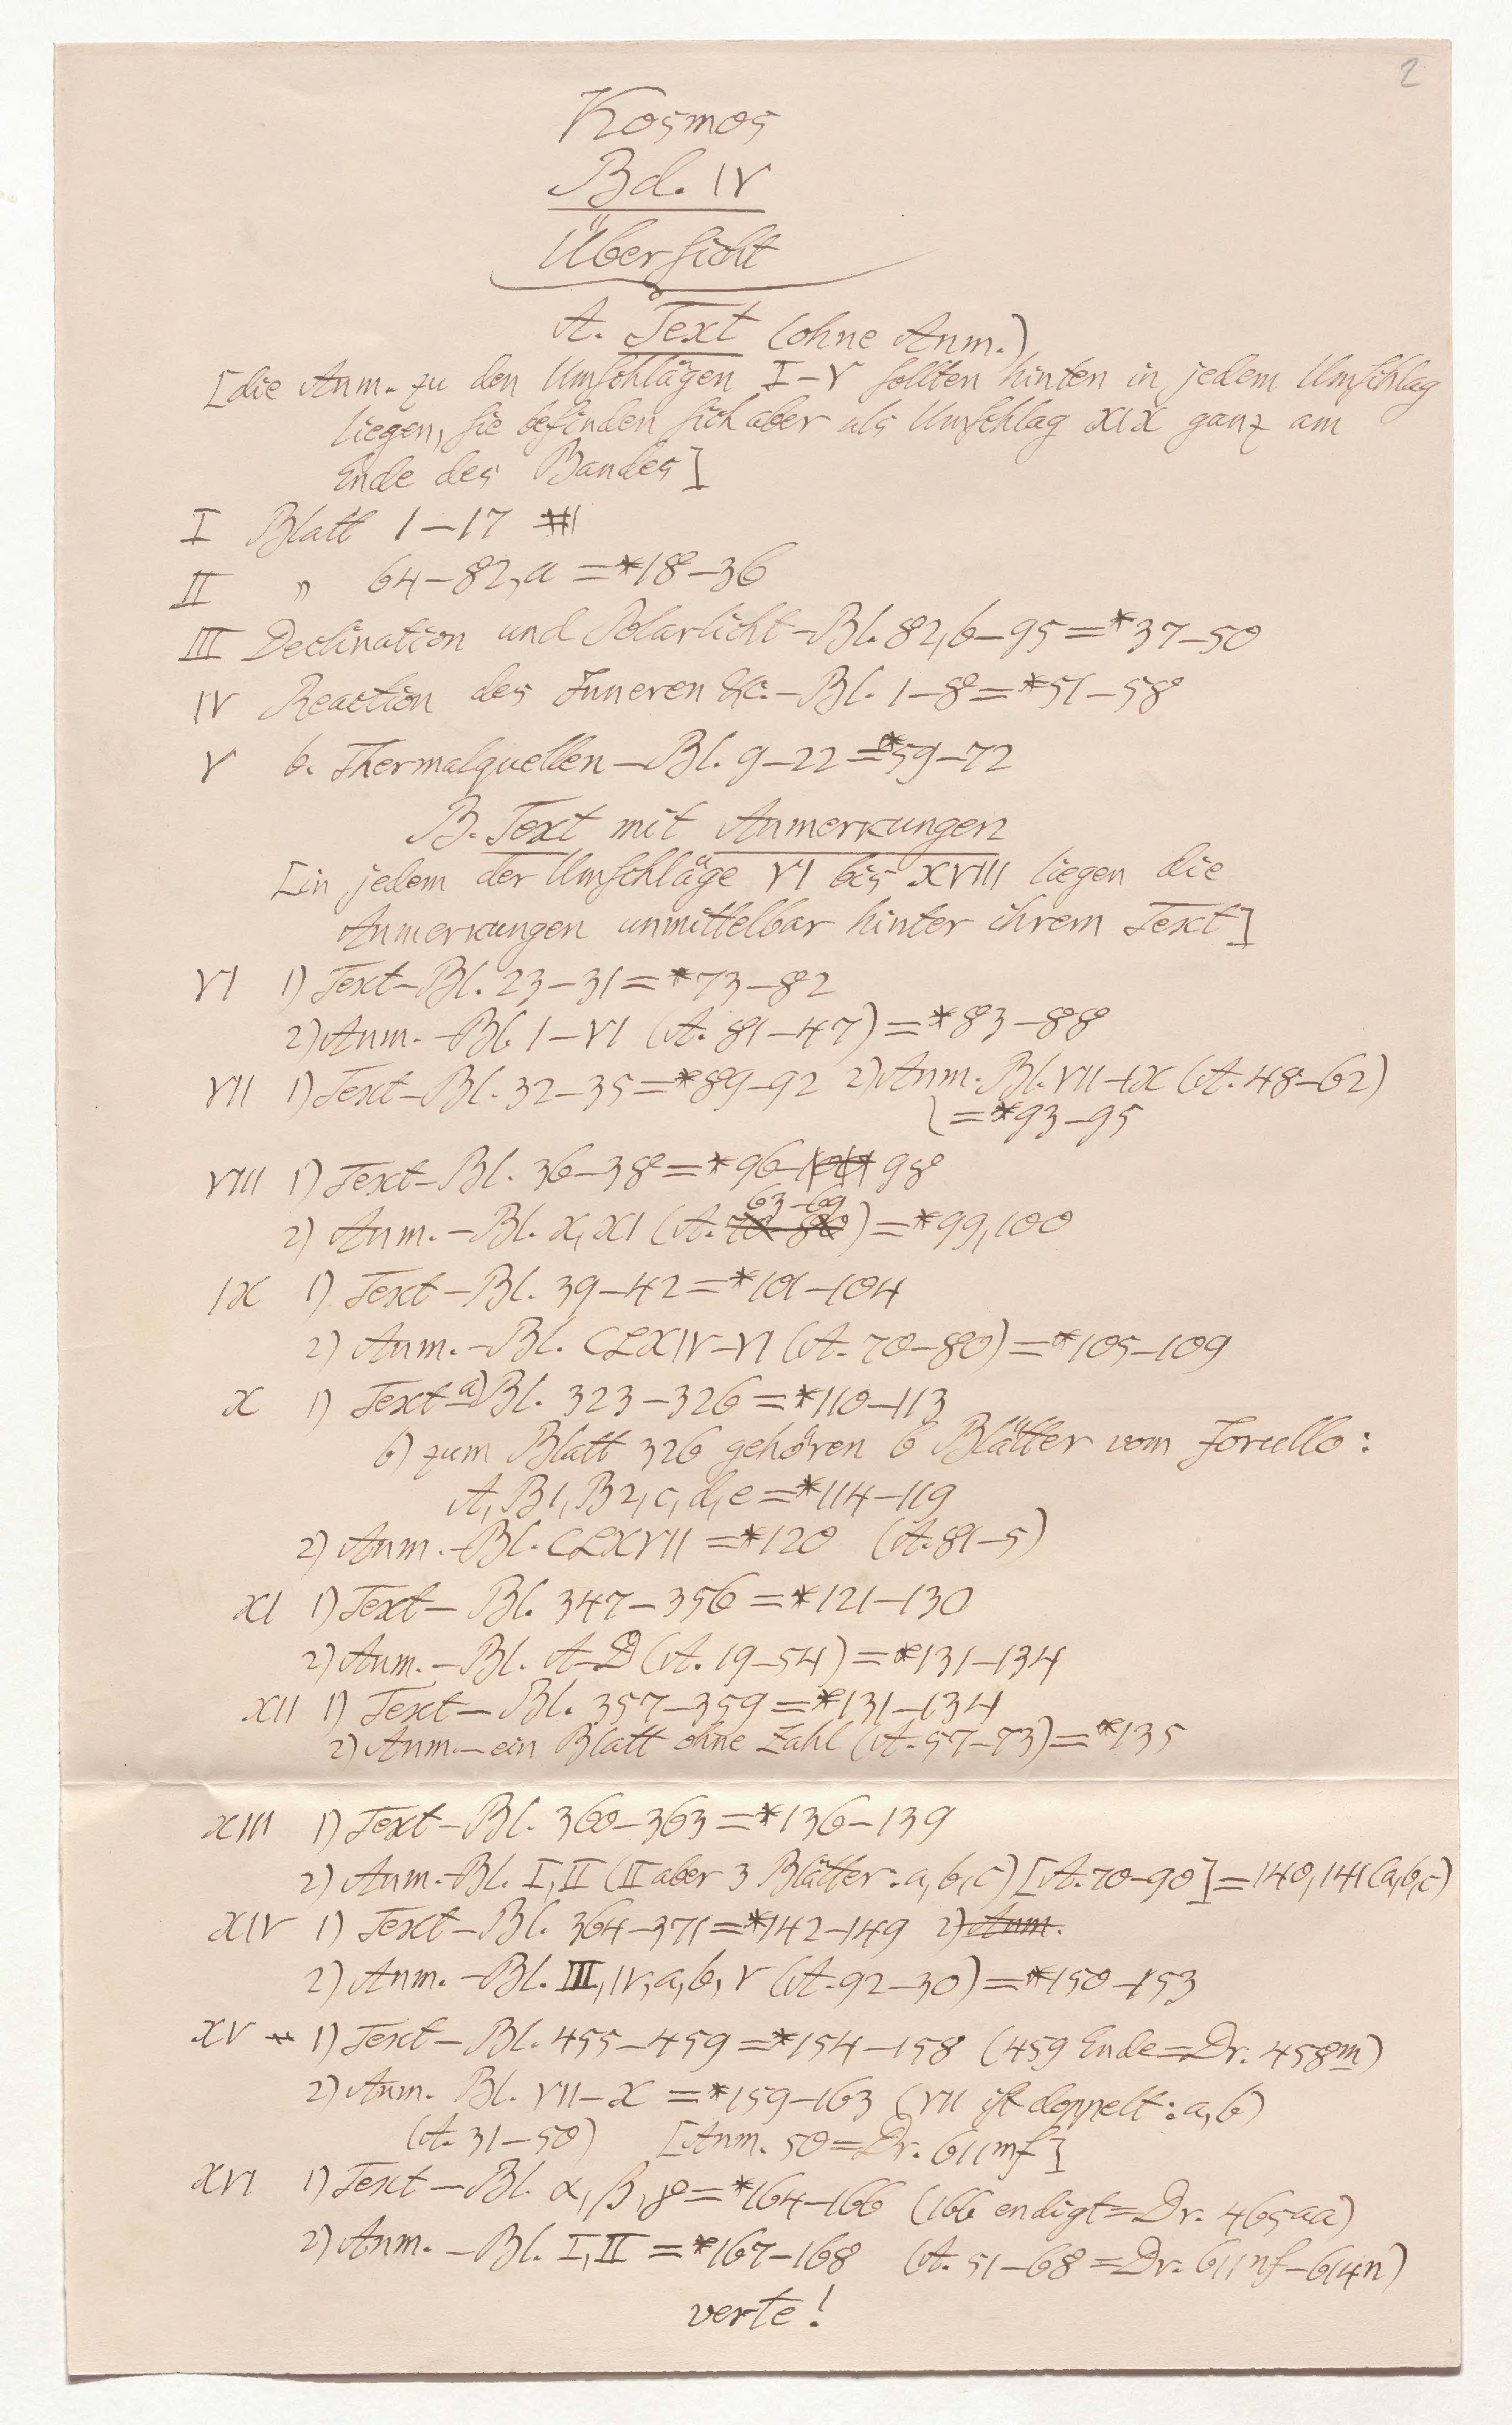 2
Kosmos
Bd. IV
Übersicht
A. Text (ohne Anm.)
[die Anm. zu den Umschlägen I–V sollten hinten in jedem Umschlag
liegen, sie befinden sich aber als Umschlag XIX ganz am
Ende des Bandes]
I Blatt 1–17
II " 64–82,a = *18–36
III Declination und Polarlicht – Bl. 82,b–95 = *37–50
IV Reaction des Inneren &c. – Bl. 1–8 = *51–58
V b. Thermalquellen – Bl. 9–22 = *59–72
B. Text mit Anmerkungen
[in jedem der Umschläge VI bis XVIII liegen die
Anmerkungen unmittelbar hinter ihrem Text]
VI 1) Text – Bl. 23–31 = *73–82
2) Anm. – Bl. I–VI (A. 81–47) = *83–88
VII 1) Text – Bl. 32–35 = *89–92 2) Anm. Bl. VII–IX (A. 48–62)
= *93–95
VIII 1) Text – Bl. 36–38 = *96–98
63–69
2) Anm. – Bl. X, XI (A. 70–80) = *99, 100
IX 1) Text – Bl. 39–42 = *101–104
2) Anm. – Bl. CLXIV–VI (A. 70–80) = *105–109
X 1) Text – a) Bl. 323–326 = *110–113
b) zum Blatt 326 gehören 6 Blätter vom Jorullo:
A, B1, B2, c, d, e = *114–119
2) Anm. – Bl. CLXVII = *120 (A. 81–5)
XI 1) Text – Bl. 347–356 = *121–130
2) Anm. – Bl. A–D (A. 19–54) = *131–134
XII 1) Text – Bl. 357–359 = *131–134
2) Anm. – ein Blatt ohne Zahl (A. 57–73) = *135
XIII 1) Text – Bl. 360–363 = *136–139
2) Anm. – Bl. I, II (II aber 3 Blätter: a, b, c) [A. 70–90] = 140, 141 (a,b,c)
XIV 1) Text – Bl. 364–371 = *142–149 2) Anm.
2) Anm. – Bl. III, IV, a, b, V (A. 92–30) = *150–153
XV 1) Text – Bl. 455–459 = *154–158 (459 Ende = Dr. 458m)
2) Anm. Bl. VII–X = *159–163 (VII ist doppelt: a, b)
(A. 31–50) [Anm. 50 = Dr. 611mf]
XVI 1) Text – Bl. α, β, γ = *164–166 (166 endigt = Dr. 465aa)
2) Anm. – Bl. I, II = *167–168 (A. 51–68 = Dr. 611nf–614n)
verte!